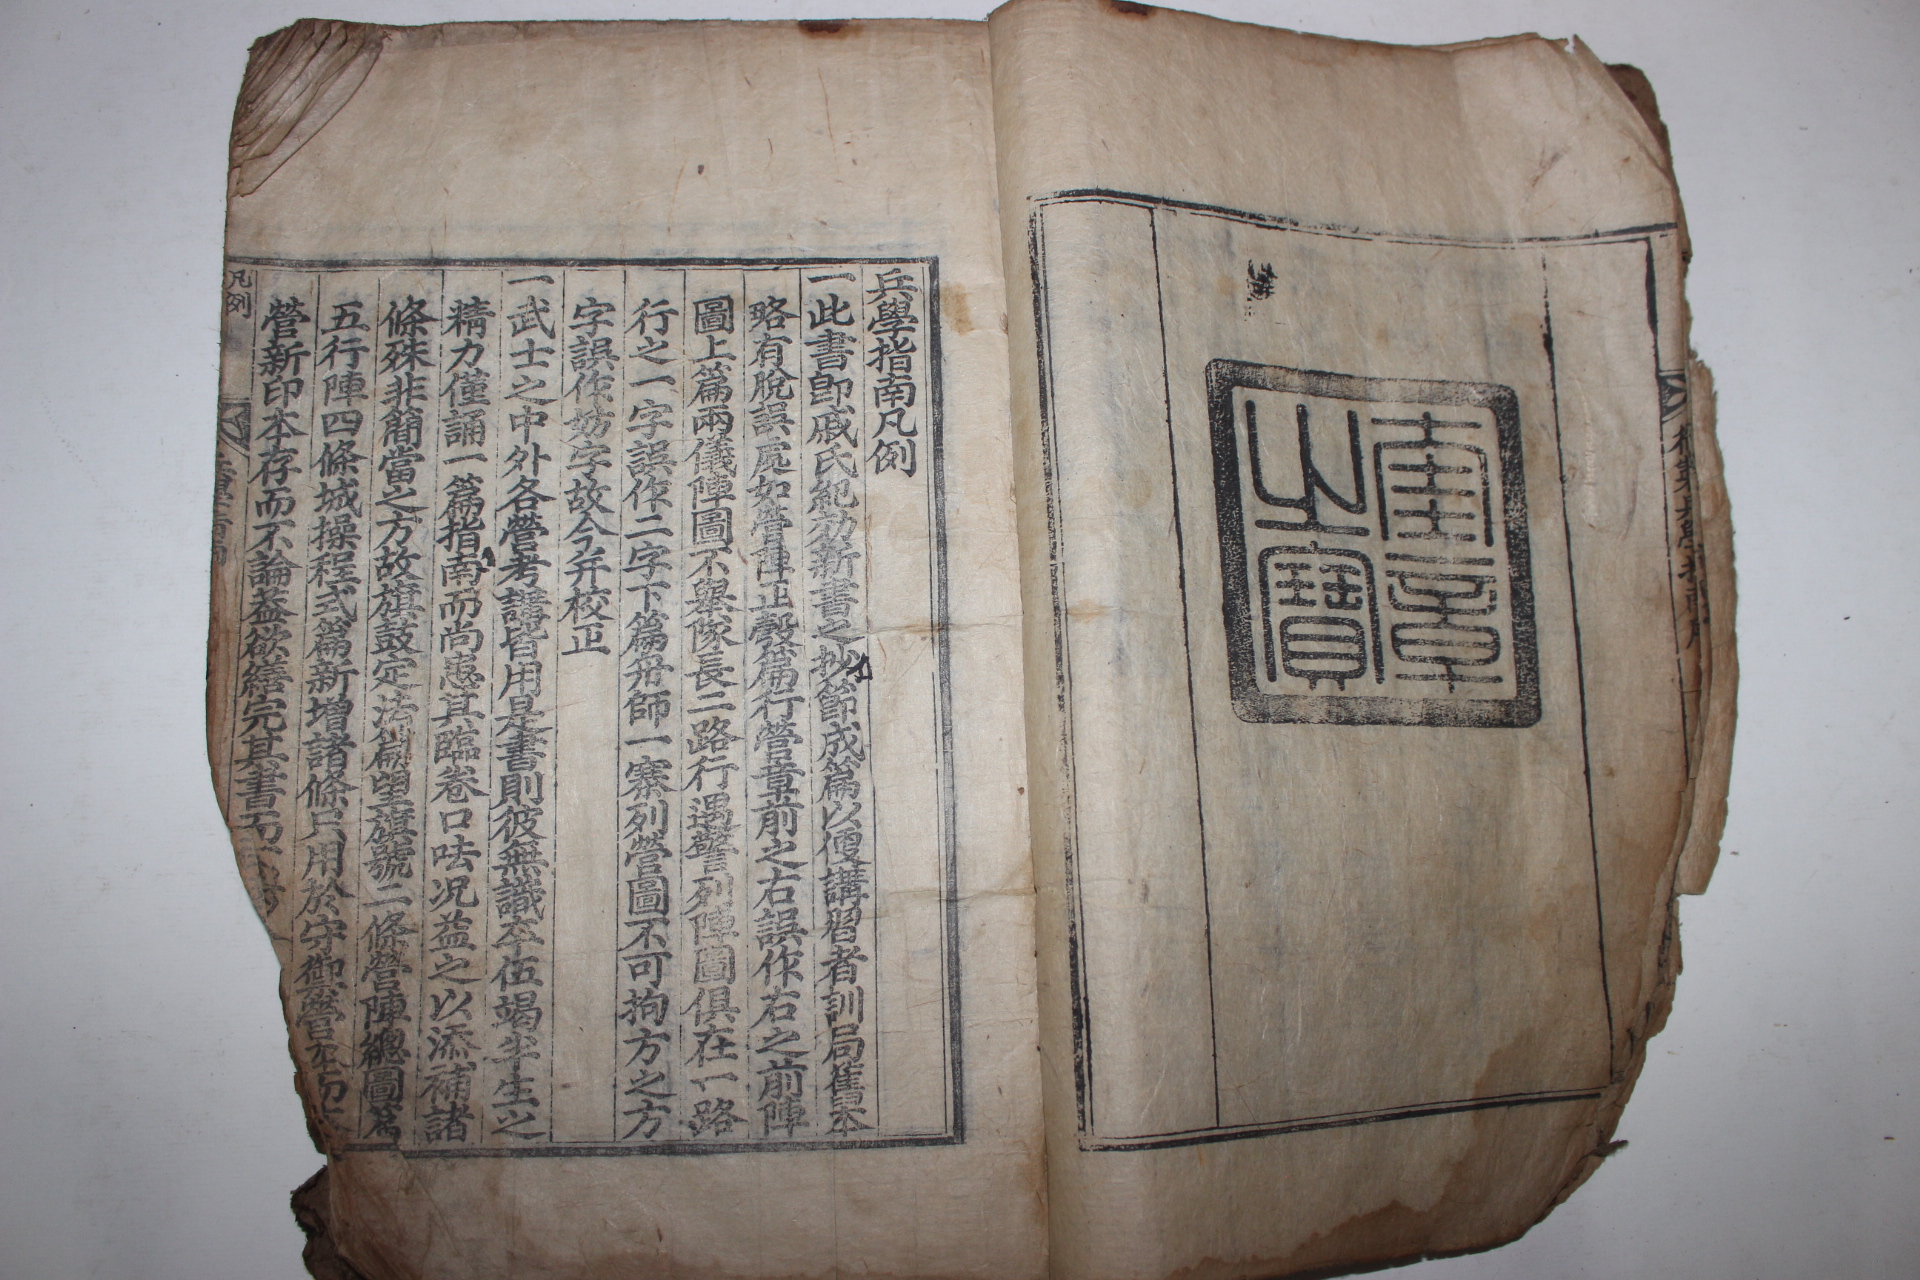 奎章
之寶
兵學指南凡例
一此書即戚氏紀效新書之抄節成篇以便講習者訓局舊本
略有脫誤處如營陣正彀篇行營章前之右誤作右之前陣
圖上篇兩儀陣圖不舉隊長二路行遇警列陣圖俱在一路
行之一字誤作二字下篇舟師一寨列營圖不可拘方之方
字誤作妨字故今并校正
一武士之中外各營考講皆用是書則彼無識卒伍竭半生之
精力僅誦一篇指南而尚患其臨卷口呿况益之以添補諸
條殊非簡當之方故旗鼓定法篇望旗號二條營陣總圖篇
五行陣四條城操程式篇新增諸條只用於守禦營
營新印本存而不論葢欲繕完其書
凡例